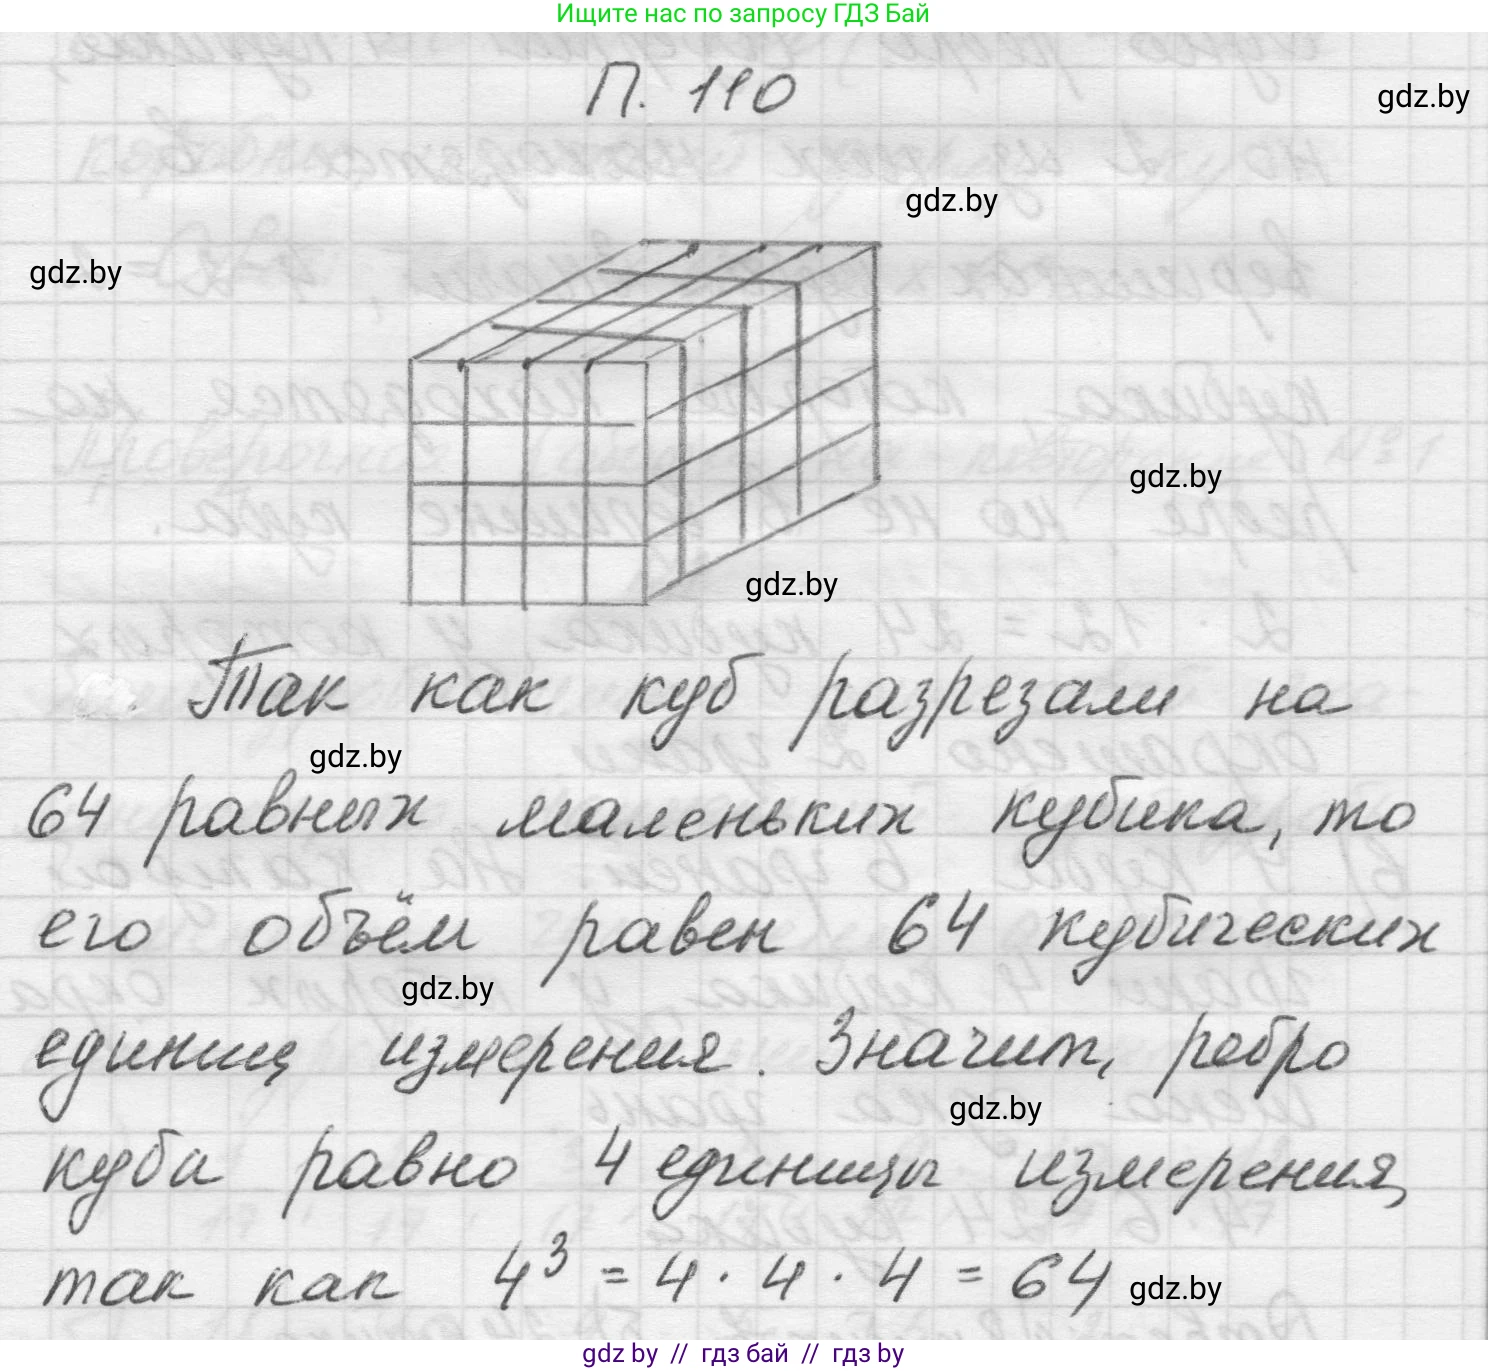 Ищите нас по запросу ГДЗ Бай
П. 110
gdz.by
gdz.by
gdz.by
gdz.by
gdz.by
Так как куб разрезали на
gdz.by
64 равных маленьких кубика, то
его объём равен 64 кубических
gdz.by
единиц измерения. Значит, ребро
gdz.by
куба равно 4 единицы измерения,
так как 4³ = 4 · 4 · 4 = 64
gdz.by
gdz.by // гдз бай // гдз by